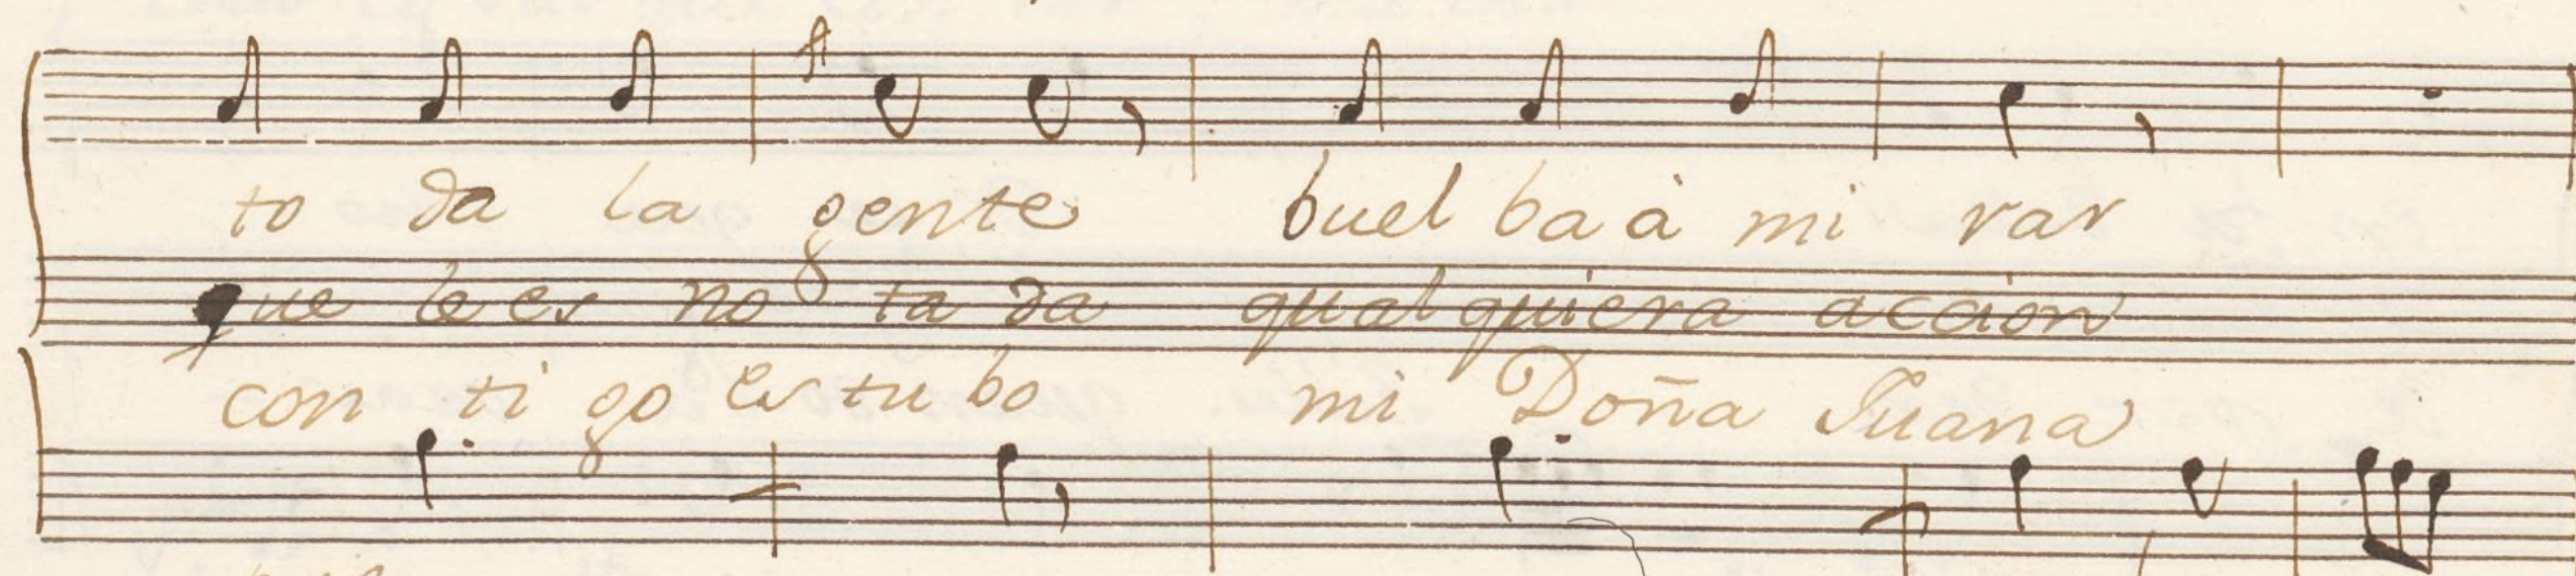 to da la gente buel ba à mi rar
que le es no ta da qualquiera accion
con ti go es tu bo mi Doña Juana